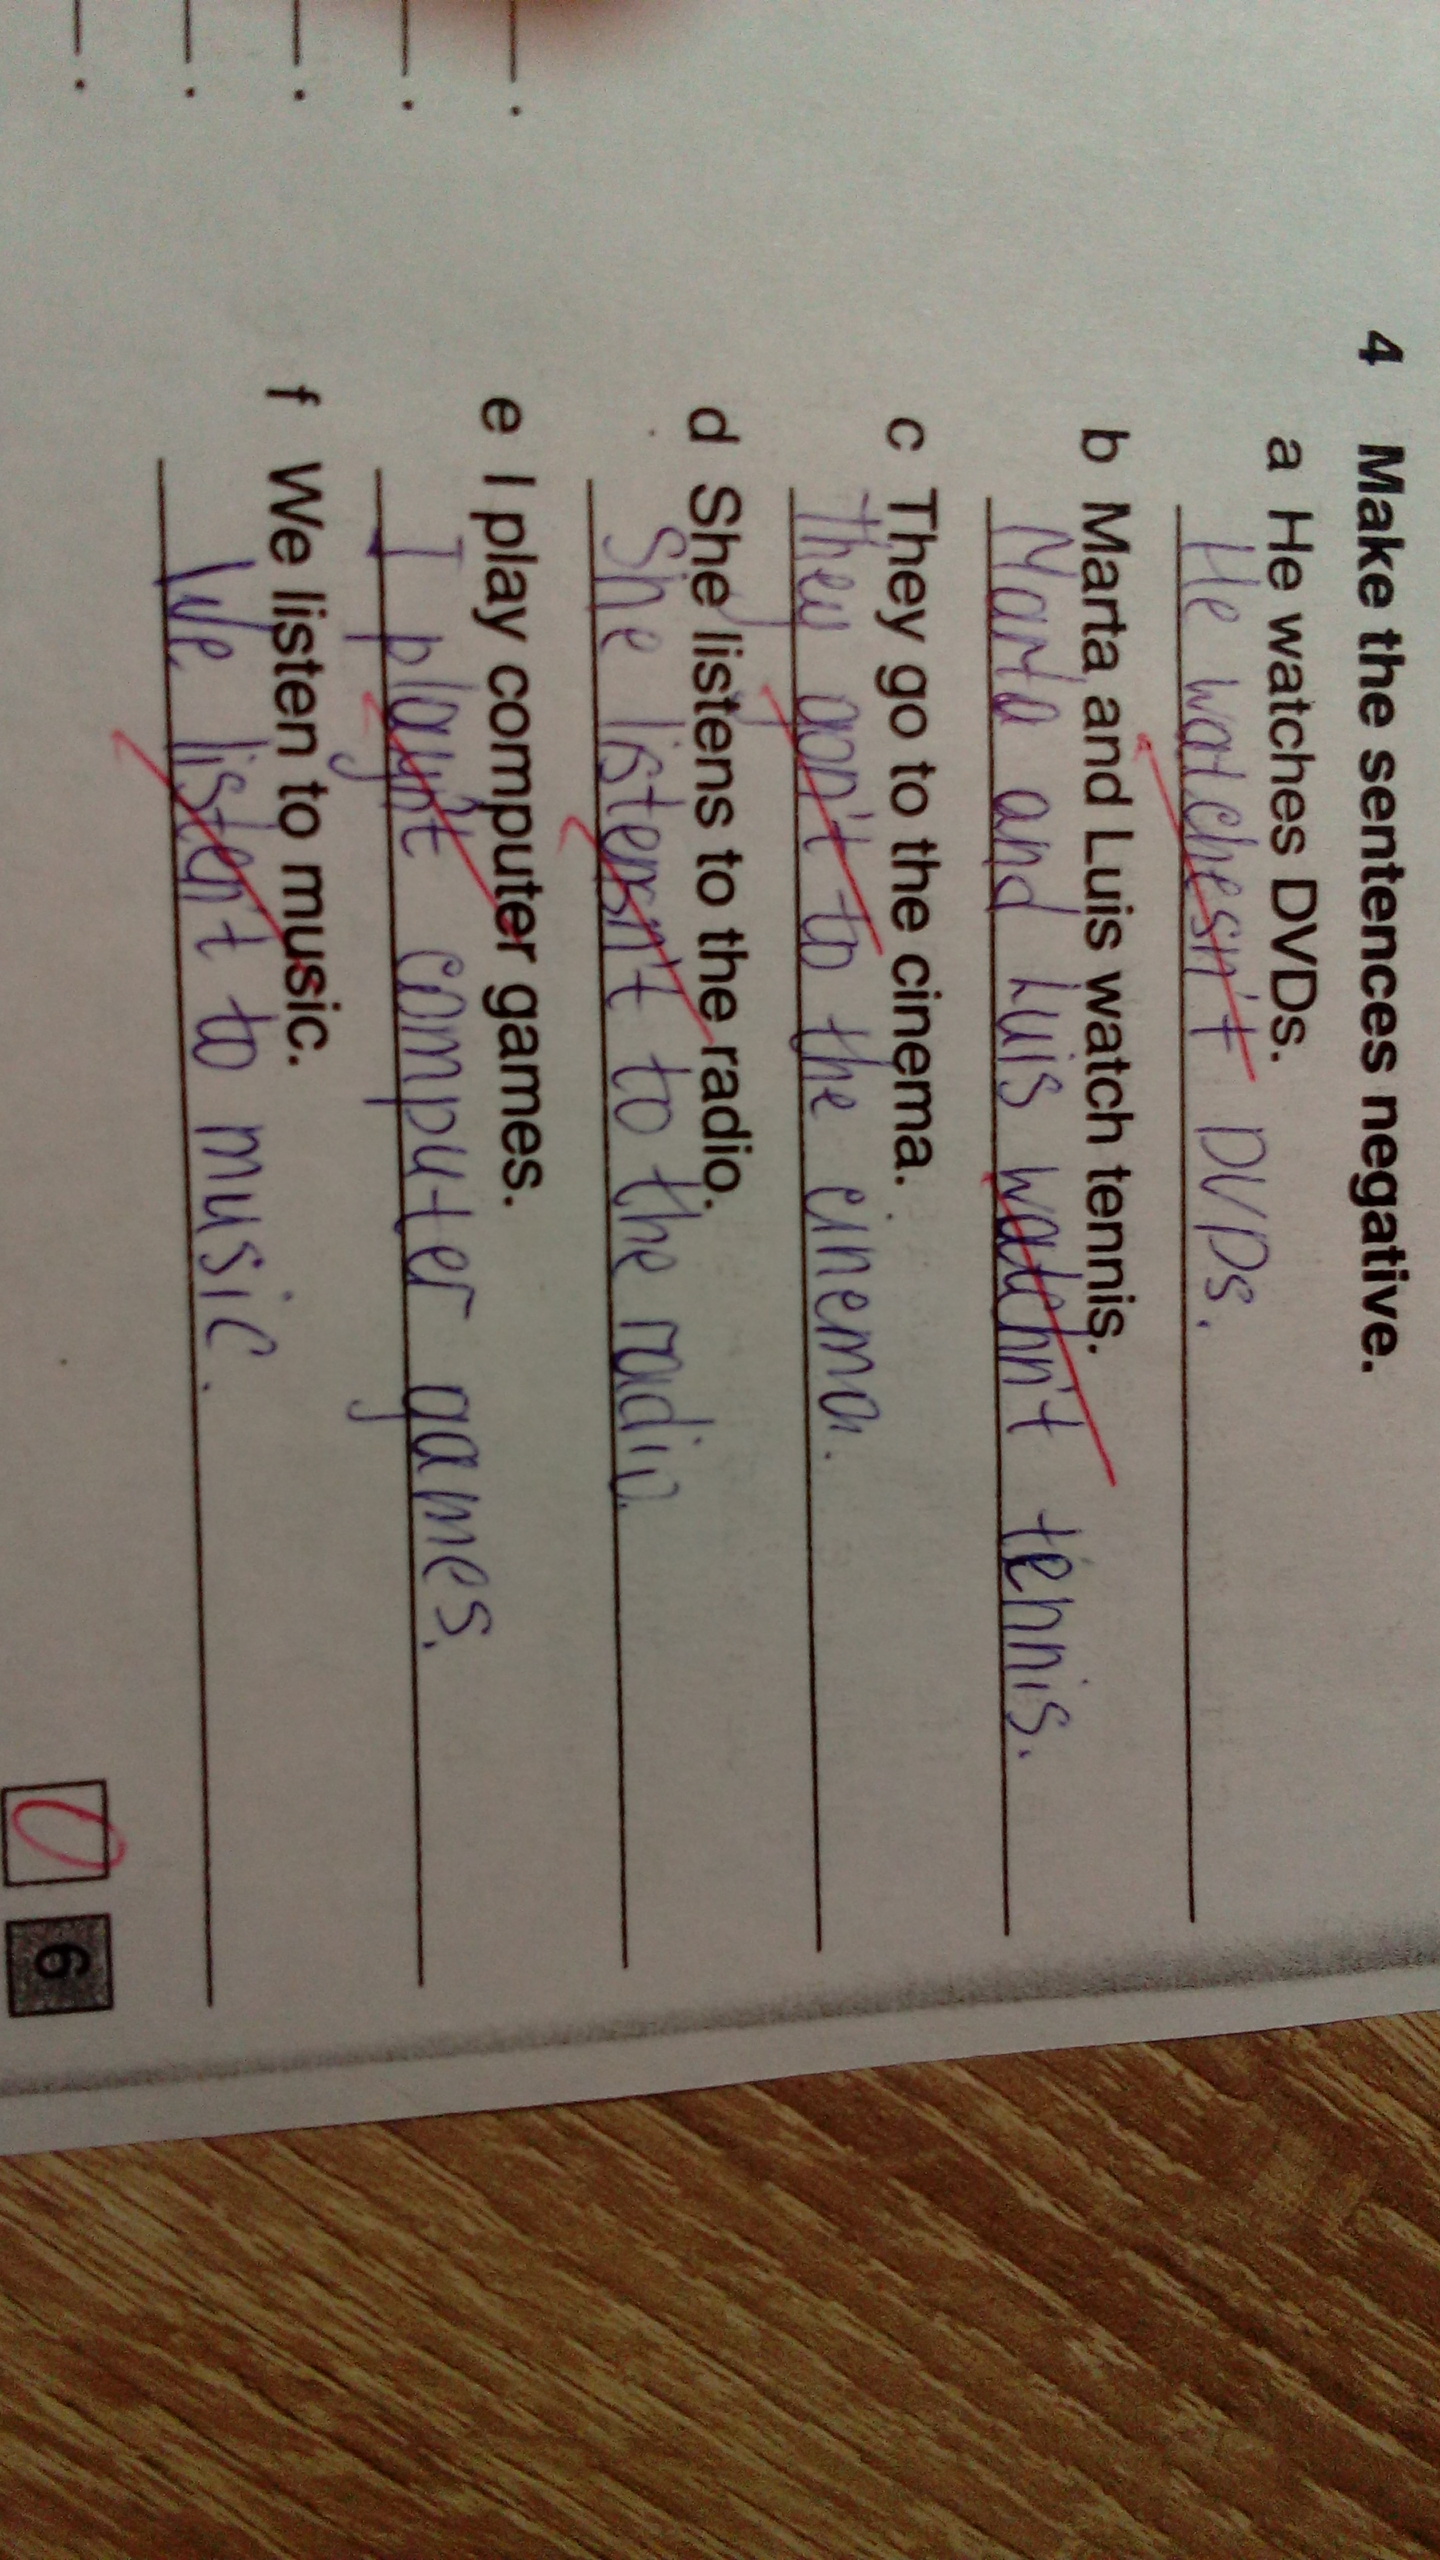 4 Make the sentences negative.
a He watches DVDs.
He watchesn't DVDs.
b Marta and Luis watch tennis.
Marta and Luis watchn't tennis.
c They go to the cinema.
They gon't to the cinema.
d She listens to the radio.
She listensn't to the radio.
e I play computer games.
I playn't computer games.
f We listen to music.
We listen't to music.
0 6